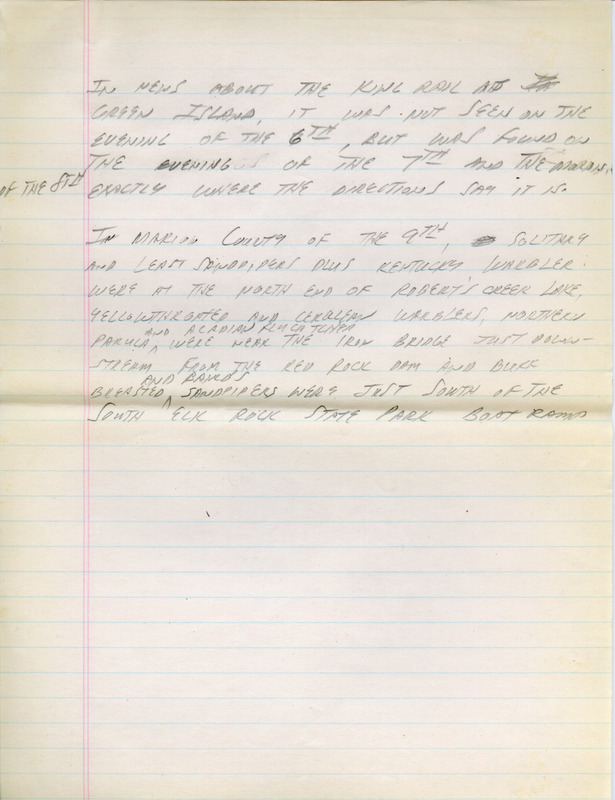 IN NEWS ABOUT THE KING RAIL AT
GREEN ISLAND, IT WAS NOT SEEN ON THE
EVENING OF THE 6TH, BUT WAS FOUND ON
THE EVENING OF THE 7TH AND THE MORNING
OF THE 8TH EXACTLY WHERE THE DIRECTIONS SAY IT IS.
IN MARION COUNTY OF THE 9TH, SOLITARY
AND LEAST SANDPIPERS PLUS KENTUCKY WARBLER
WERE AT THE NORTH END OF ROBERT'S CREEK LAKE,
YELLOWTHROATED AND CERULEAN WARBLERS, NORTHERN
AND ACADIAN FLYCATCHER
PARULA, WERE NEAR THE IRON BRIDGE JUST DOWN-
STREAM FROM THE RED ROCK DAM AND BUFF
AND BAIRDS
BREASTED SANDPIPERS WERE JUST SOUTH OF THE
SOUTH ELK ROCK STATE PARK BOAT RAMP